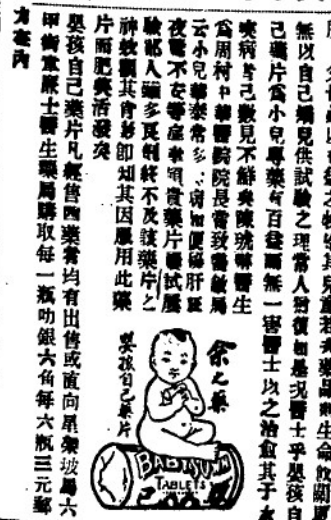 無以自己嬌兒供試驗之理常人對復如是況醫士乎嬰孩自
己藥片爲小兒專藥有百益而無一害醫士以之治愈其子女
疾病者已數見不鮮矣陳琥醫生
爲周村中華醫院院長嘗致書敝局
云小兒華泰常多病如便秘肝旺
夜驚不安等症幸頻賣藥片屢試屢
驗鄙人雖多良劑終不及該藥片之
神效觀其肖影卽知其因服用此藥
片而肥美活潑矣
嬰孩自己藥片凡經售西藥者均有出售或直向星架坡局六
甲街韋廉士醫生藥局購取每一瓶叻銀六角每六瓶三元郵
力在內
余之藥
嬰孩自己藥片
BABY'S OWN
TABLETS